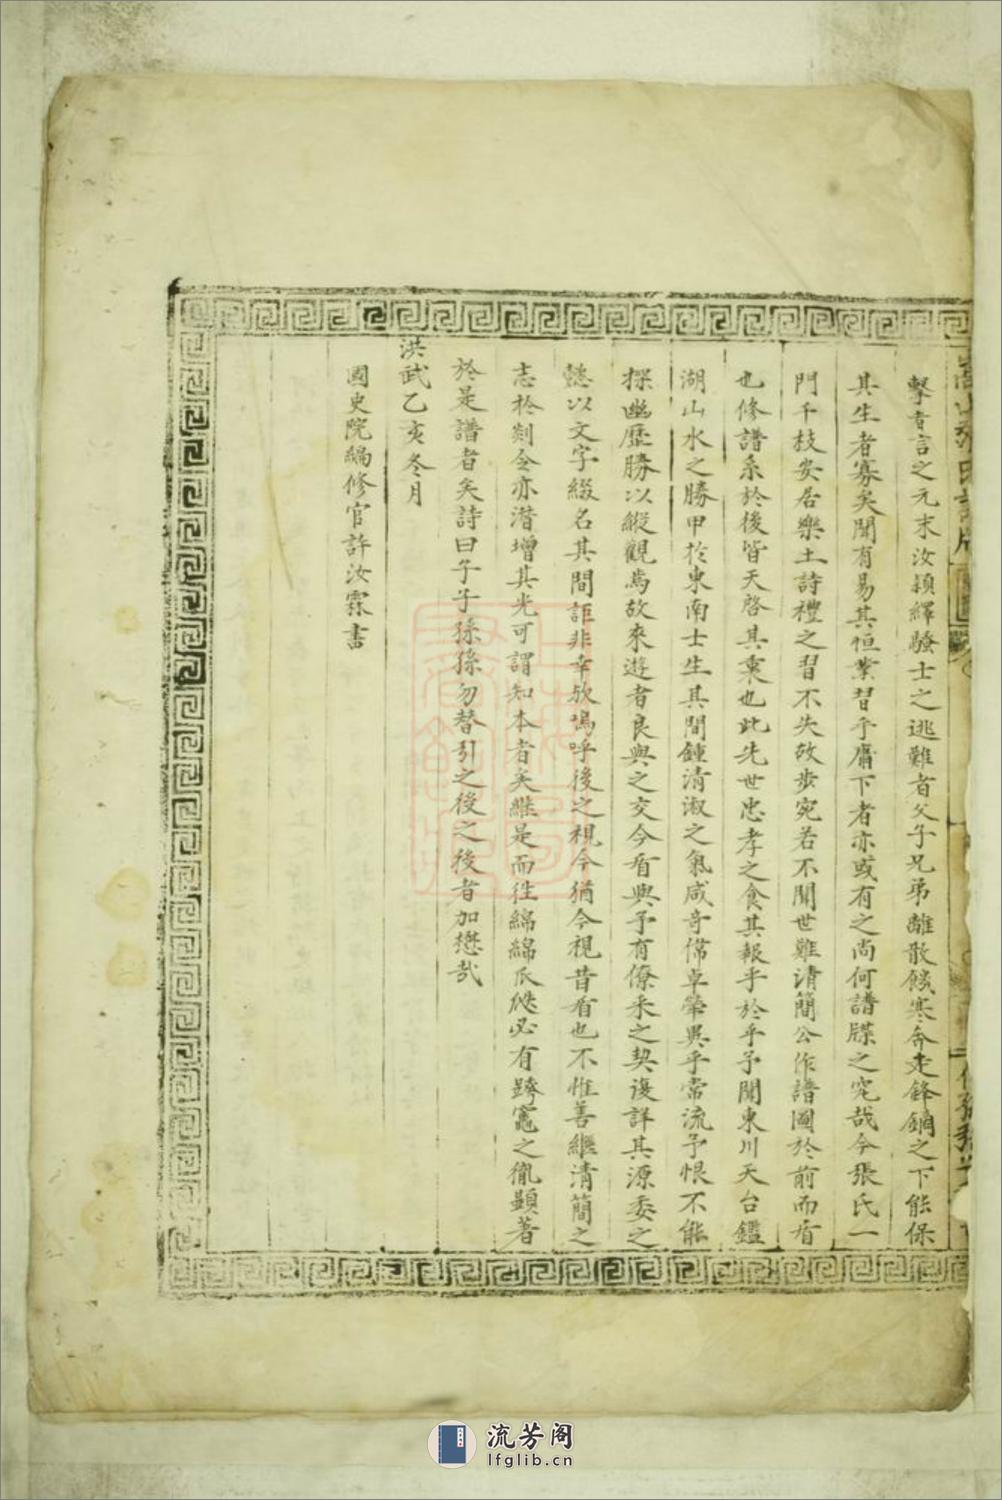 擊者言之元末汝穎繹騷士之逃難者父子兄弟離散餓寒奔走鋒鏑之下能保
其生者寡矣聞有易其恒業習乎庸下者亦或有之尚何譜牒之究哉今張氏一
門千枝安居樂土詩禮之習不失故步宛若不聞世難清簡公作譜圖於前而看
也修譜系於後皆天啓其衷也此先世忠孝之食其報乎於乎予聞東川天台鑑
湖山水之勝甲於東南士生其間鍾清淑之氣咸奇偉卓犖異乎常流予恨不能
探幽歷勝以縱觀焉故來遊者良與之交今看與予有僚寀之契復詳其源委之
懿以文字綴名其間詎非幸歟嗚呼後之視今猶今視昔看也不惟善繼清簡之
志於剡令亦潛增其光可謂知本者矣繼是而徃綿綿瓜瓞必有跨竈之胤顯著
於是譜者矣詩曰子子孫孫勿替引之後之後者加懋哉
洪武乙亥冬月
國史院編修官許汝霖書
流芳阁
lfglib.cn